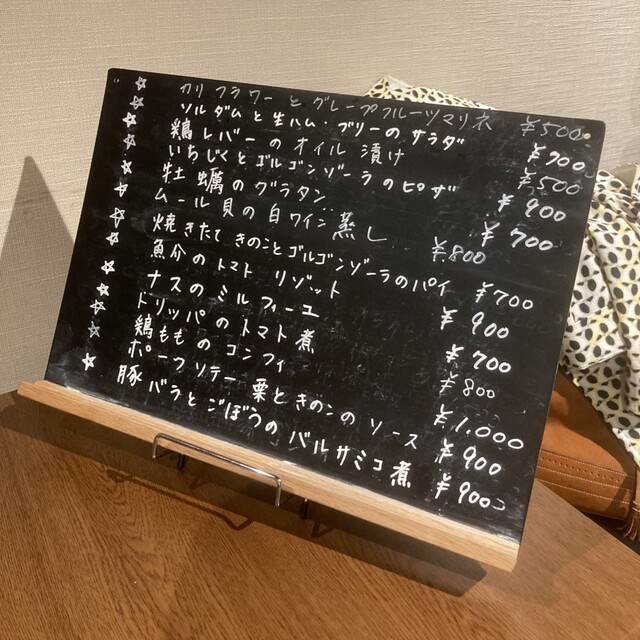 ☆ カリフラワーとグレープフルーツマリネ ¥500
☆ ソルダムと生ハム・ブリーのサラダ ¥900
☆ 鶏レバーのオイル漬け ¥500
☆ いちじくとゴルゴンゾーラのピザ ¥900
☆ 牡蠣のグラタン ¥700
☆ ムール貝の白ワイン蒸し ¥800
☆ 焼きたてきのことゴルゴンゾーラのパイ ¥700
☆ 魚介のトマトリゾット ¥900
☆ ナスのミルフィーユ ¥700
☆ トリッパのトマト煮 ¥800
☆ 鶏もものコンフィ ¥1,000
☆ ポークソテー 栗ときのこのソース ¥900
☆ 豚バラとごぼうのバルサミコ煮 ¥900